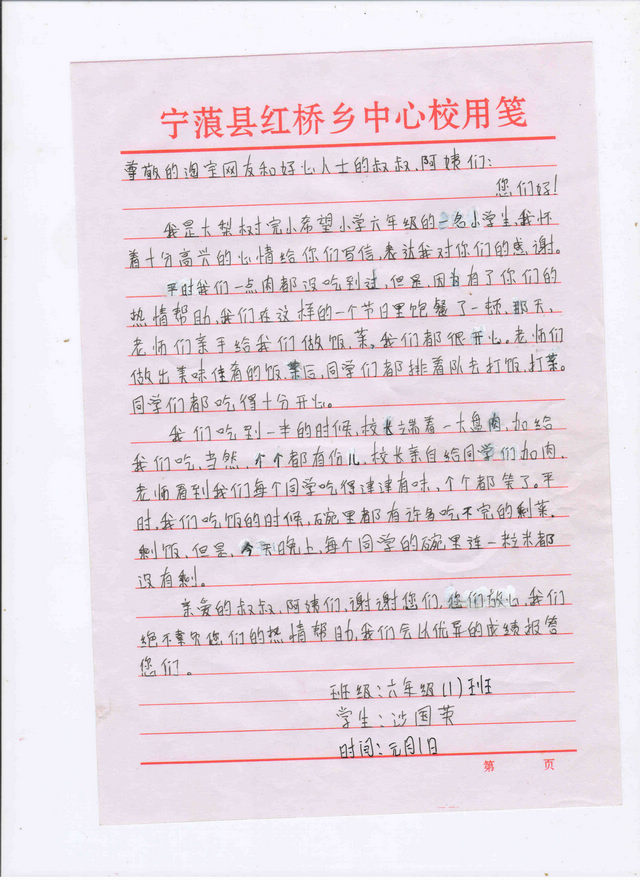 宁蒗县红桥乡中心校用笺
尊敬的淘宝网友和好心人士的叔叔、阿姨们:
您们好!
我是大梨树完小希望小学六年级的一名小学生,我怀
着十分高兴的心情给你们写信,表达我对你们的感谢。
平时我们一点肉都没吃到过,但是,因为有了你们的
热情帮助,我们在这样的一个节日里饱餐了一顿,那天、
老师们亲手给我们做饭、菜,我们都很开心。老师们
做出美味佳肴的饭菜后,同学们都排着队去打饭、打菜。
同学们都吃得十分开心。
我们吃到一半的时候,校长端着一大盘肉,加给
我们吃,当然,个个都有份儿,校长亲自给同学们加肉,
老师看到我们每个同学吃得津津有味,个个都笑了。平
时,我们吃饭的时候,碗里都有许多吃不完的剩菜、
剩饭,但是,今天晚上,每个同学的碗里连一粒米都
没有剩。
亲爱的叔叔、阿姨们,谢谢您们,您们放心,我们
绝不辜负您们的热情帮助,我们会以优异的成绩报答
您们。
班级:六年级(1)班
学生:沙国英
时间:元月1日
第 页